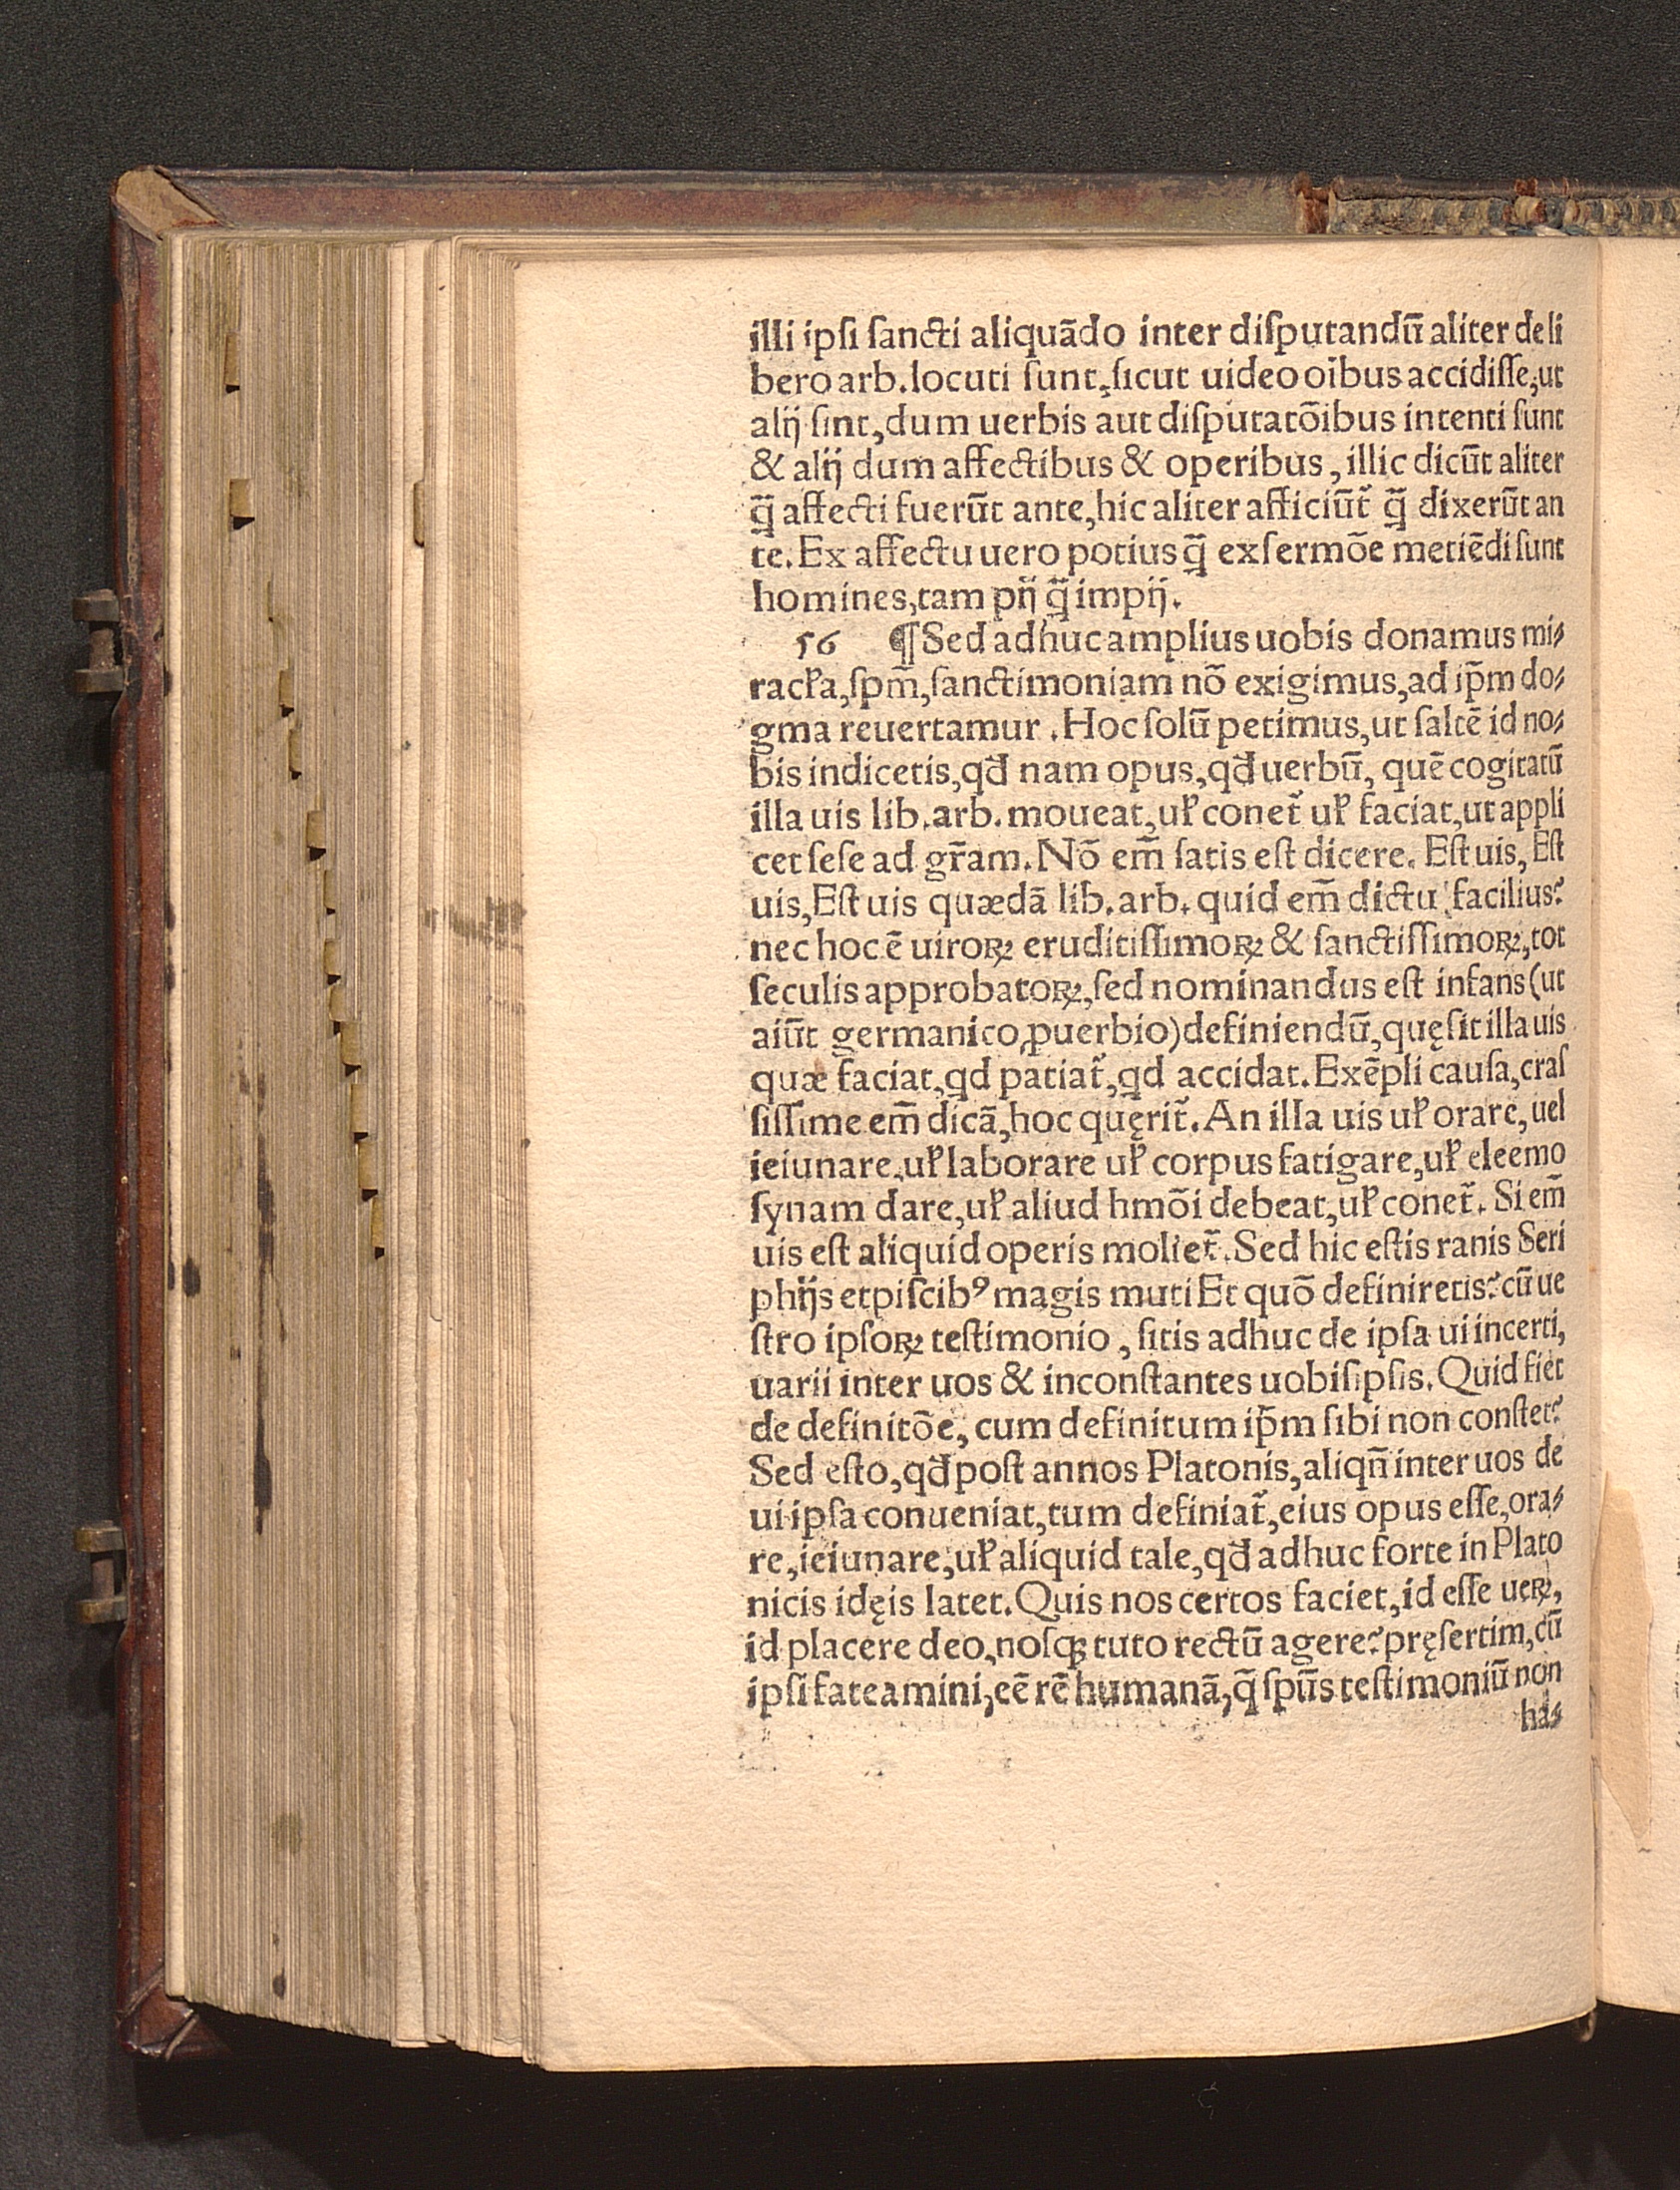 illi ipſi ſancti aliquādo inter diſputandū aliter de li
bero arb. locuti ſunt, ſicut uideo oībus accidiſſe, ut
alij ſint, dum uerbis aut diſputatōibus intenti ſunt
& alij dum affectibus & operibus, illic dicūt aliter
q̄ affecti fuerūt ante, hic aliter afficiūt᷑ q̄ dixerūt an
te. Ex affectu uero potius q̄ ex ſermōe metiēdi ſunt
homines, tam pij q̄ impij.
56 ¶ Sed adhuc amplius uobis donamus mi⸗
racꝉa, ſpm̄, ſanctimoniam nō exigimus, ad ip̄m do⸗
gma reuertamur. Hoc ſolū petimus, ut ſaltē id no⸗
bis indicetis, qđ nam opus, qđ uerbū, quē cogitatū
illa uis lib. arb. moueat, uꝉ conet᷑ uꝉ faciat, ut appli
cet ſeſe ad gr̄am. Nō em̄ ſatis eſt dicere. Eſt uis, Eſt
uis, Eſt uis quædā lib. arb. quid em̄ dictu facilius?
nec hoc ē uiroꝝ eruditiſſimoꝝ & ſanctiſſimoꝝ, tot
ſeculis approbatoꝝ, ſed nominandus eſt infans (ut
aiūt germanico ꝓuerbio) definiendū, quę ſit illa uis
quæ faciat, qd patiat᷑, qd accidat. Exēpli cauſa, craſ
ſiſſime em̄ dicā, hoc quęrit᷑. An illa uis uꝉ orare, uel
ieiunare, uꝉ laborare uꝉ corpus fatigare, uꝉ eleemo
ſynam dare, uꝉ aliud hmōi debeat, uꝉ conet᷑. Si em̄
uis eſt aliquid operis moliet᷑. Sed hic eſtis ranis Seri
phijs et piſcibꝰ magis muti Et quō definiretis? cū ue
ſtro ipſoꝝ teſtimonio, ſitis adhuc de ipſa ui incerti,
uarii inter uos & inconſtantes uobiſipſis. Quid fiet
de definitōe, cum definitum ip̄m ſibi non conſtet?
Sed eſto, qđ poſt annos Platonis, aliqn̄ inter uos de
ui ipſa conueniat, tum definiat᷑, eius opus eſſe, ora⸗
re, ieiunare, uꝉ aliquid tale, qđ adhuc forte in Plato
nicis idęis latet. Quis nos certos faciet, id eſſe ueꝝ,
id placere deo, noſqꝫ tuto rectū agere? pręſertim, cū
ipſi fateamini, eē rē humanā, q̄ ſpūs teſtimoniū non
ha⸗